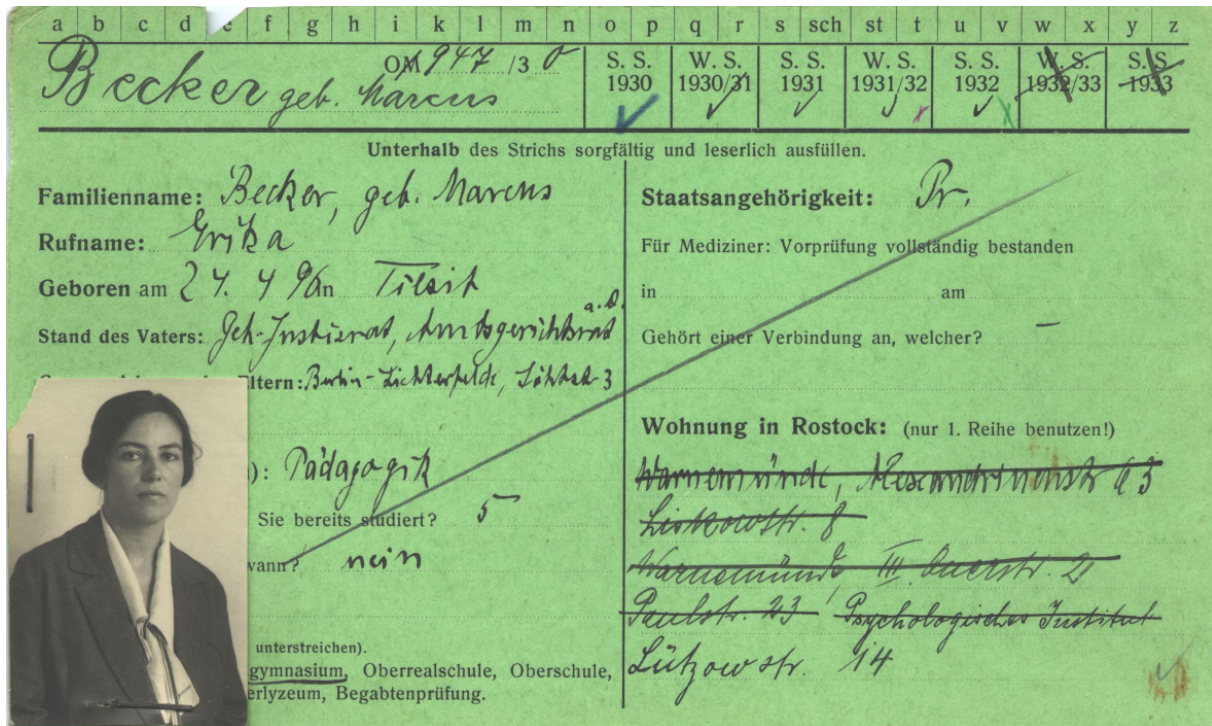 a b c d e f g h i k l m n o p q r s sch st t u v w x y z
Becker geb. Marcus
OM 947 /30
S. S. 1930
W. S. 1930/31
S. S. 1931
W. S. 1931/32
S. S. 1932
W. S. 1932/33
S. S. 1933
Unterhalb des Strichs sorgfältig und leserlich ausfüllen.
Familienname: Becker, geb. Marcus
Rufname: Erika
Geboren am 24. 4 96 in Tilsit
Stand des Vaters: Geh. Justizrat, Amtsgerichtsrat a.D.
ltern: Berlin-Lichterfelde, 3
): Pädagogik
Sie bereits studiert? 5
wann? nein
unterstreichen).
gymnasium, Oberrealschule, Oberschule,
erlyzeum, Begabtenprüfung.
Staatsangehörigkeit: Pr.
Für Mediziner: Vorprüfung vollständig bestanden
in am
Gehört einer Verbindung an, welcher? –
Wohnung in Rostock: (nur 1. Reihe benutzen!)
Warnemünde, Alexandrinenstr 63
Liskowstr. 8
Warnemünde, III. Querstr. 2
Paulstr. 23 Psychologisches Institut
Lützowstr. 14